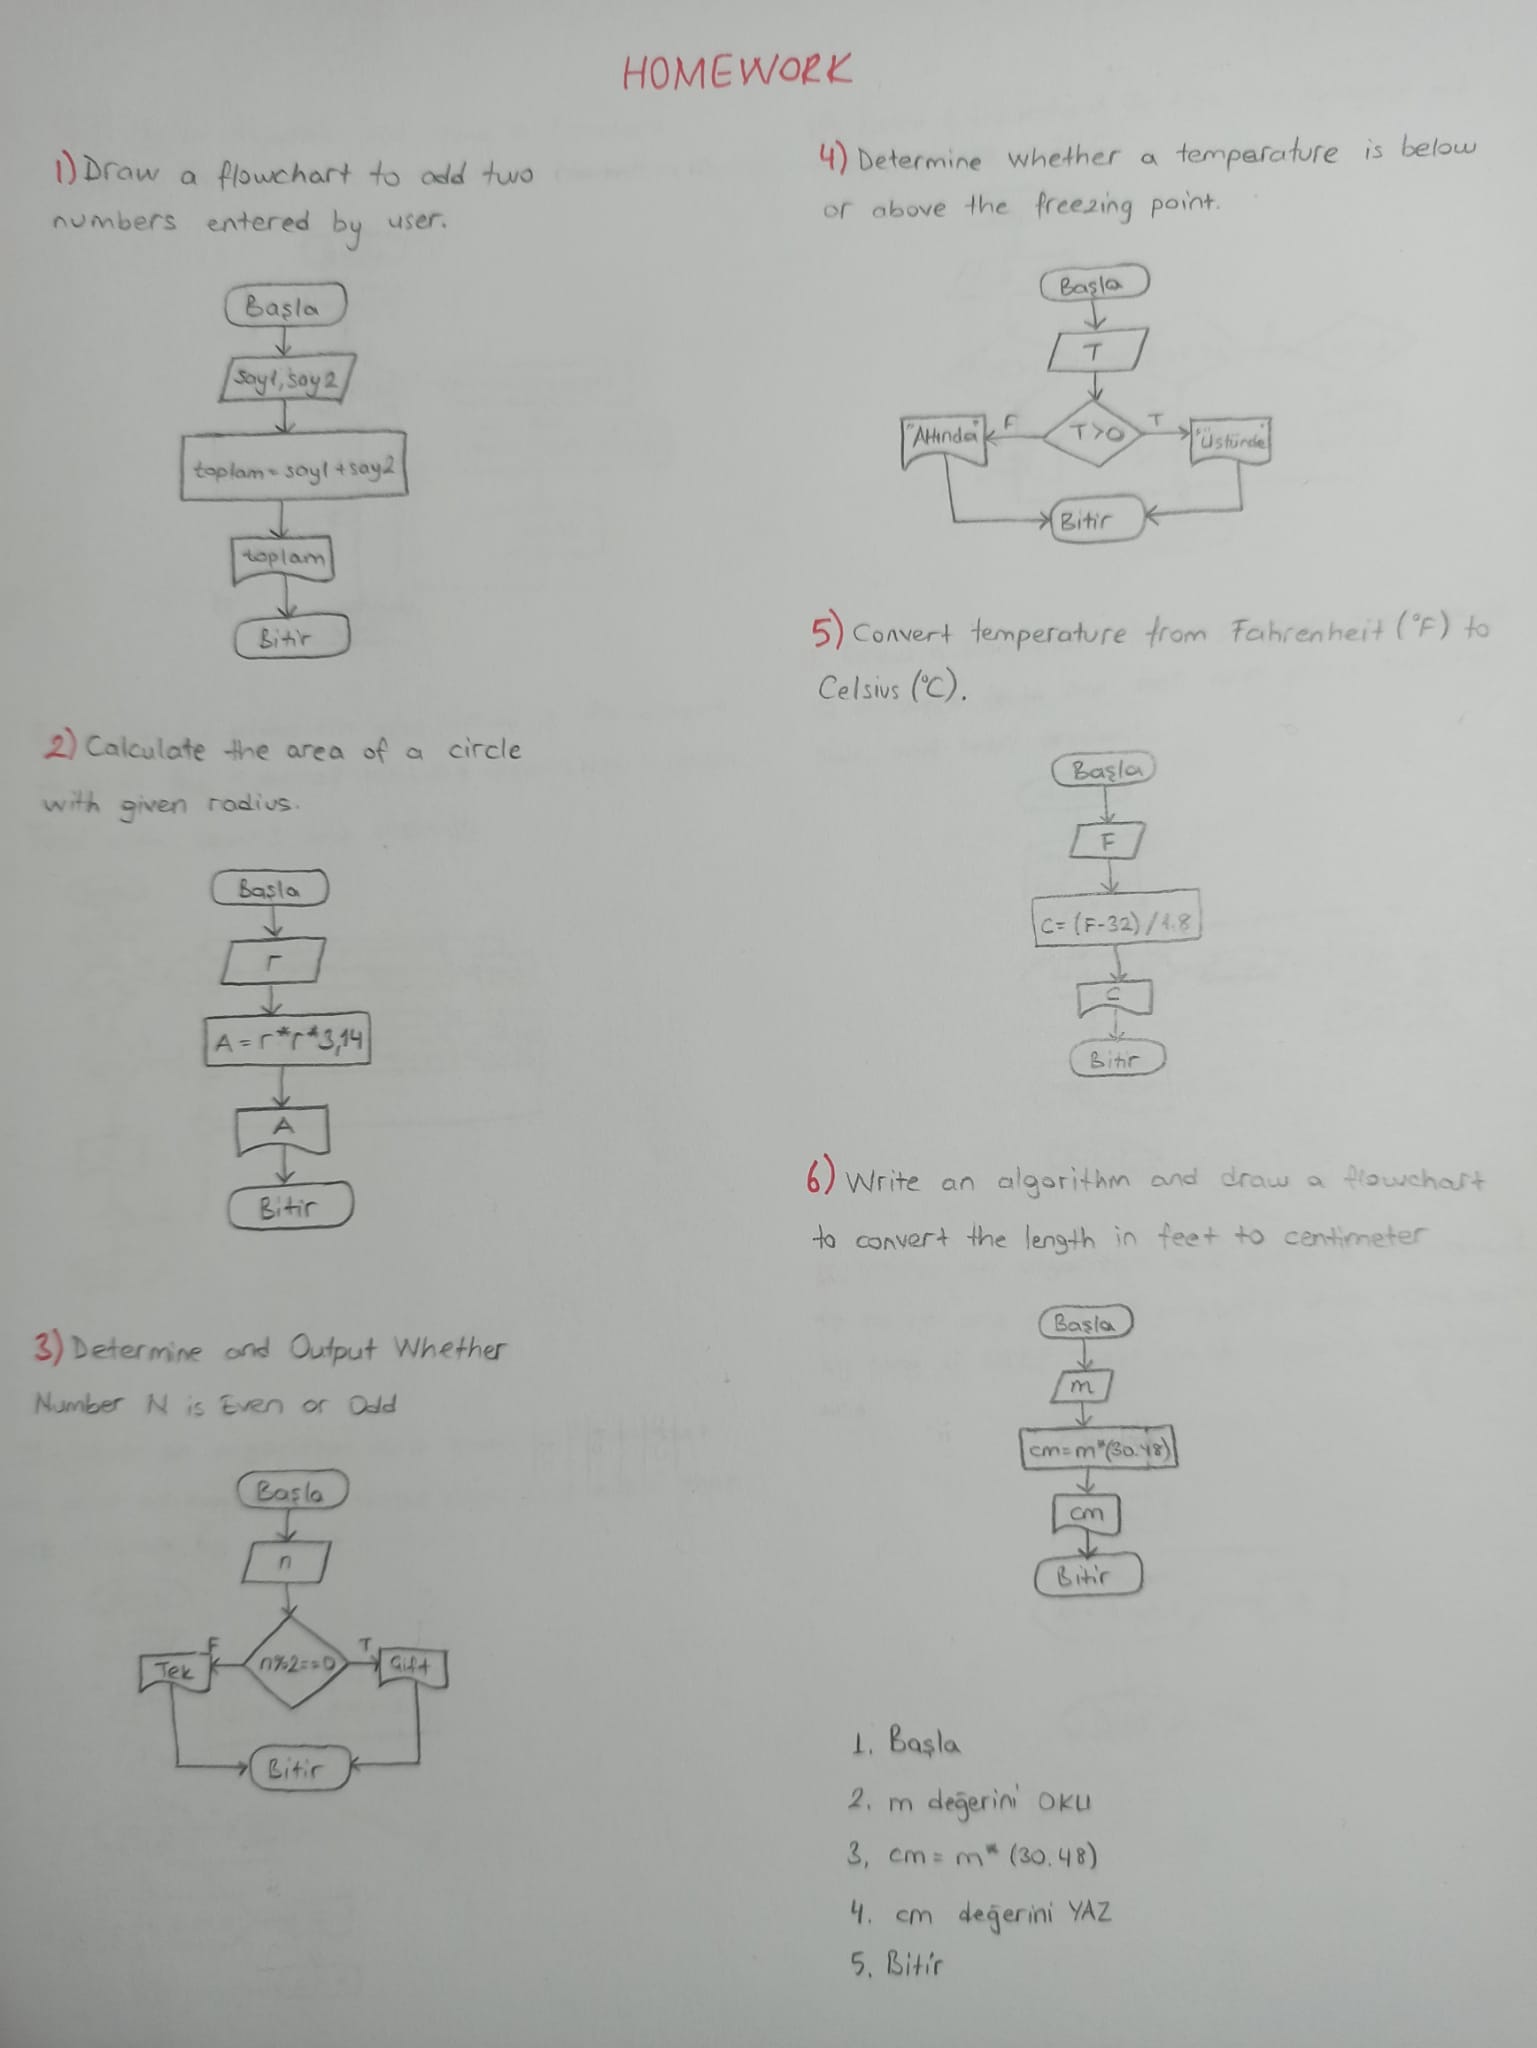 HOMEWORK
1) Draw a flowchart to add two
numbers entered by user.
Başla
say1, say2
toplam = say1 + say2
toplam
Bitir
2) Calculate the area of a circle
with given radius.
Başla
r
A = r*r*3,14
A
Bitir
3) Determine and Output Whether
Number N is Even or Odd
Başla
n
F
T
Tek
n%2==0
Çift
Bitir
4) Determine whether a temperature is below
or above the freezing point.
Başla
T
F
T
"Altında"
T>0
"Üstünde"
Bitir
5) Convert temperature from Fahrenheit (°F) to
Celsius (°C).
Başla
F
C = (F-32) / 1.8
C
Bitir
6) Write an algorithm and draw a flowchart
to convert the length in feet to centimeter
Başla
m
cm=m*(30.48)
cm
Bitir
1. Başla
2. m değerini OKU
3, cm = m* (30.48)
4. cm değerini YAZ
5. Bitir